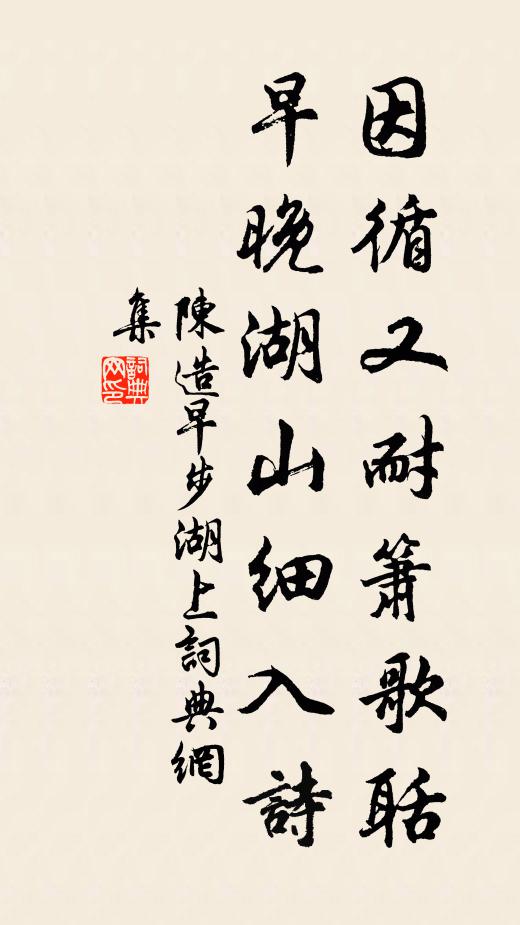 因循又耐簫歌聒
早晚湖山細入詩
陳造早步湖上詞典網
集
詞典網印